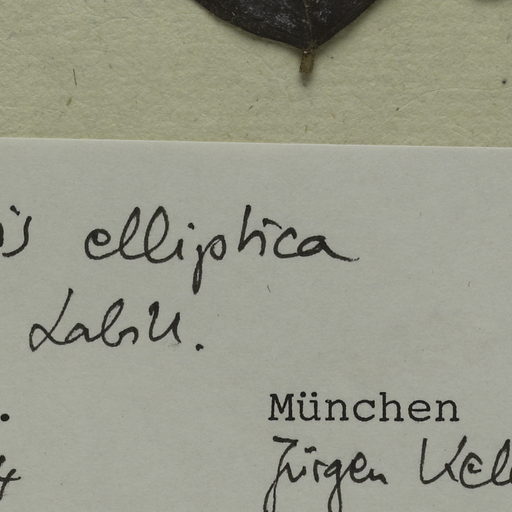 is elliptica
Labill.
. München
4 Jürgen Kel